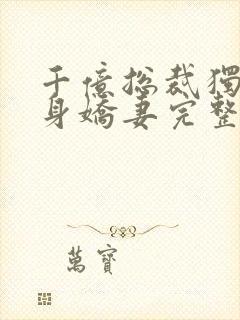 千億總裁獨
身嬌妻完整
萬寶